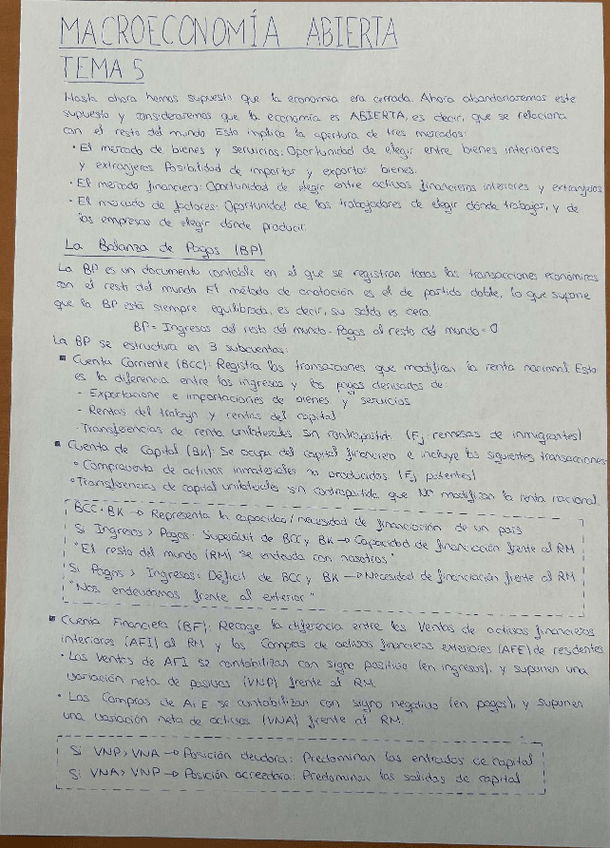 MACROECONOMÍA ABIERTA
TEMA 5
Hasta ahora hemos supuesto que la economía era cerrada. Ahora abandonaremos este
supuesto y consideraremos que la economía es ABIERTA, es decir, que se relaciona
con el resto del mundo Esto implica la apertura de tres mercados:
• El mercado de bienes y servicios: Oportunidad de elegir entre bienes interiores
y extranjeros Posibilidad de importar y exportar bienes.
• El mercado financiero: Oportunidad de elegir entre activos financieros interiores y extranjeros
• El mercado de factores: Oportunidad de los trabajadores de elegir dónde trabajar, y de
las empresas de elegir dónde producir.
La Balanza de Pagos (BP)
La BP es un documento contable en el que se registran todas las transacciones económicas
con el resto del mundo El método de anotación es el de partida doble, lo que supone
que la BP está siempre equilibrada, es decir, su saldo es cero.
BP = Ingresos del resto del mundo - Pagos al resto del mundo = 0
La BP se estructura en 3 subcuentas:
▪ Cuenta Corriente (BCC): Registra las transacciones que modifican la renta nacional Esto
es la diferencia entre los ingresos y los pagos derivados de:
- Exportacione e importaciones de bienes y servicios
- Rentas del trabajo y rentas del capital
- Transferencias de renta unilaterales sin contrapartida (Ej remesas de inmigrantes)
▪ Cuenta de Capital (BK) Se ocupa del capital financiero e incluye las siguientes transacciones
• Compraventa de activos inmateriales no producidos (Ej patentes)
• Transferencias de capital unilaterales sin contrapartida que NO modifican la renta nacional
BCC + BK → Representa la capacidad/necesidad de financiación de un país
Si Ingresos > Pagos: Superávit de BCC y BK → Capacidad de financiación frente al RM
"El resto del mundo (RM) se endeuda con nosotros"
Si Pagos > Ingresos: Déficit de BCC y BK → Necesidad de financiación frente al RM
"Nos endeudamos frente al exterior"
▪ Cuenta Financiera (BF): Recoge la diferencia entre las Ventas de activos financieros
interiores (AFI) al RM y las Compras de activos financieros exteriores (AFE) de residentes
• Las Ventas de AFI se contabilizan con signo positivo (en ingresos), y suponen una
variación neta de pasivos (VNP) frente al RM.
• Las Compras de AFE se contabilizan con signo negativo (en pagos), y suponen
una variación neta de activos (VNA) frente al RM.
Si VNP > VNA → Posición deudora: Predominan las entradas de capital
Si VNA > VNP → Posición acreedora: Predominan las salidas de capital